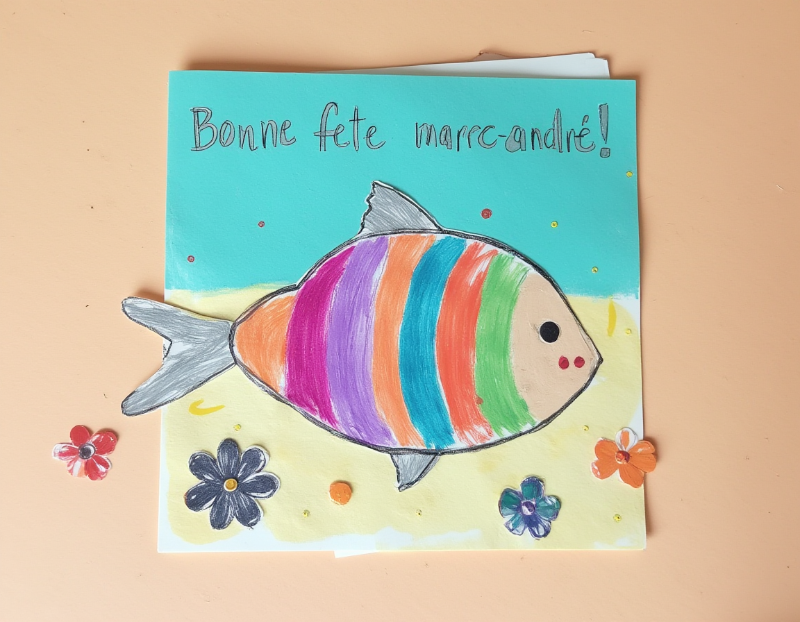 Bonne fete marrc-andré!